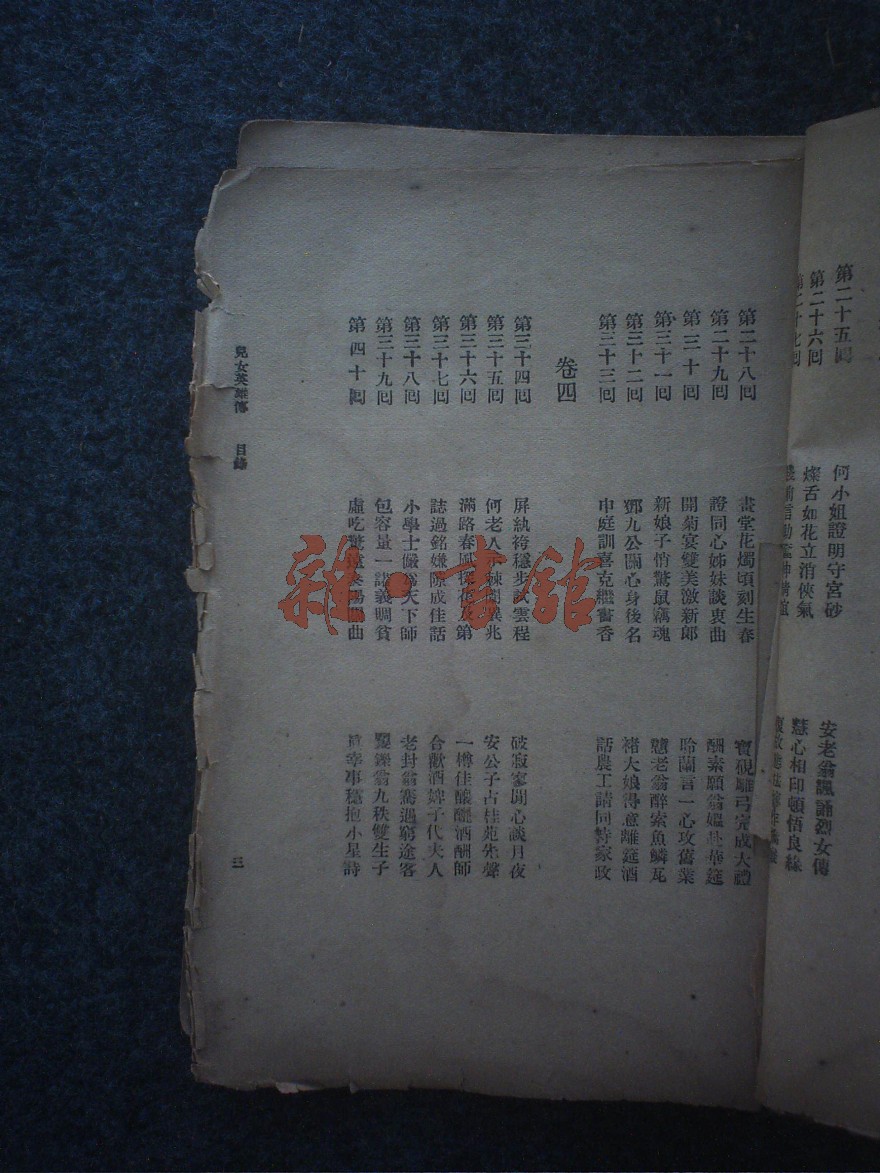 第二十五回 何小姐證明守宮砂 安老翁諷誦烈女傳
第二十六回 燦舌如花立消俠氣 慧心相印頓悟良緣
第二十七回
第二十八回 畫堂花燭頃刻生春 寶硯雕弓完成大禮
第二十九回 證同心姊妹談衷曲 酬素願翁媼赴華筵
第三十回 開菊宴雙美激新郎 聆蘭言一心攻舊業
第三十一回 新娘子悄驚鼠竊魂 戇老翁醉索魚鱗瓦
第三十二回 鄧九公關心身後名 褚大娘得意離筵酒
第三十三回 申庭訓喜克繼書香 話農工請同答家政
卷四
第三十四回 屏紈袴穩步試雲程 破寂寥閒心談月夜
第三十五回 何老人 兆 安公子占桂苑先聲
第三十六回 滿路春風探花及第 一樽佳釀醞酒酬師
第三十七回 誌過銘嫌隙成佳話 合歡酒婢子代夫人
第三十八回 小學士儼為天下師 老封翁驀遇窮途客
第三十九回 包容量一諾義賙貧 矍鑠翁九秩雙生子
第四十回 虛吃驚 陽關曲 真幸事穩抱小星詩
兒女英雄傳 目錄
三
雜·書館